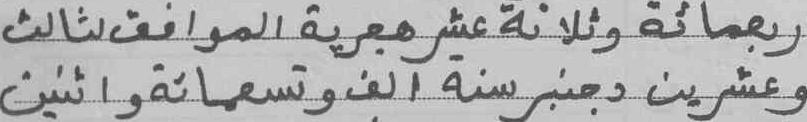 ربعمائة وثلاثة عشر هجرية الموافق لثالث
وعشرين دجنبر سنة الف وتسعمائة واثنين